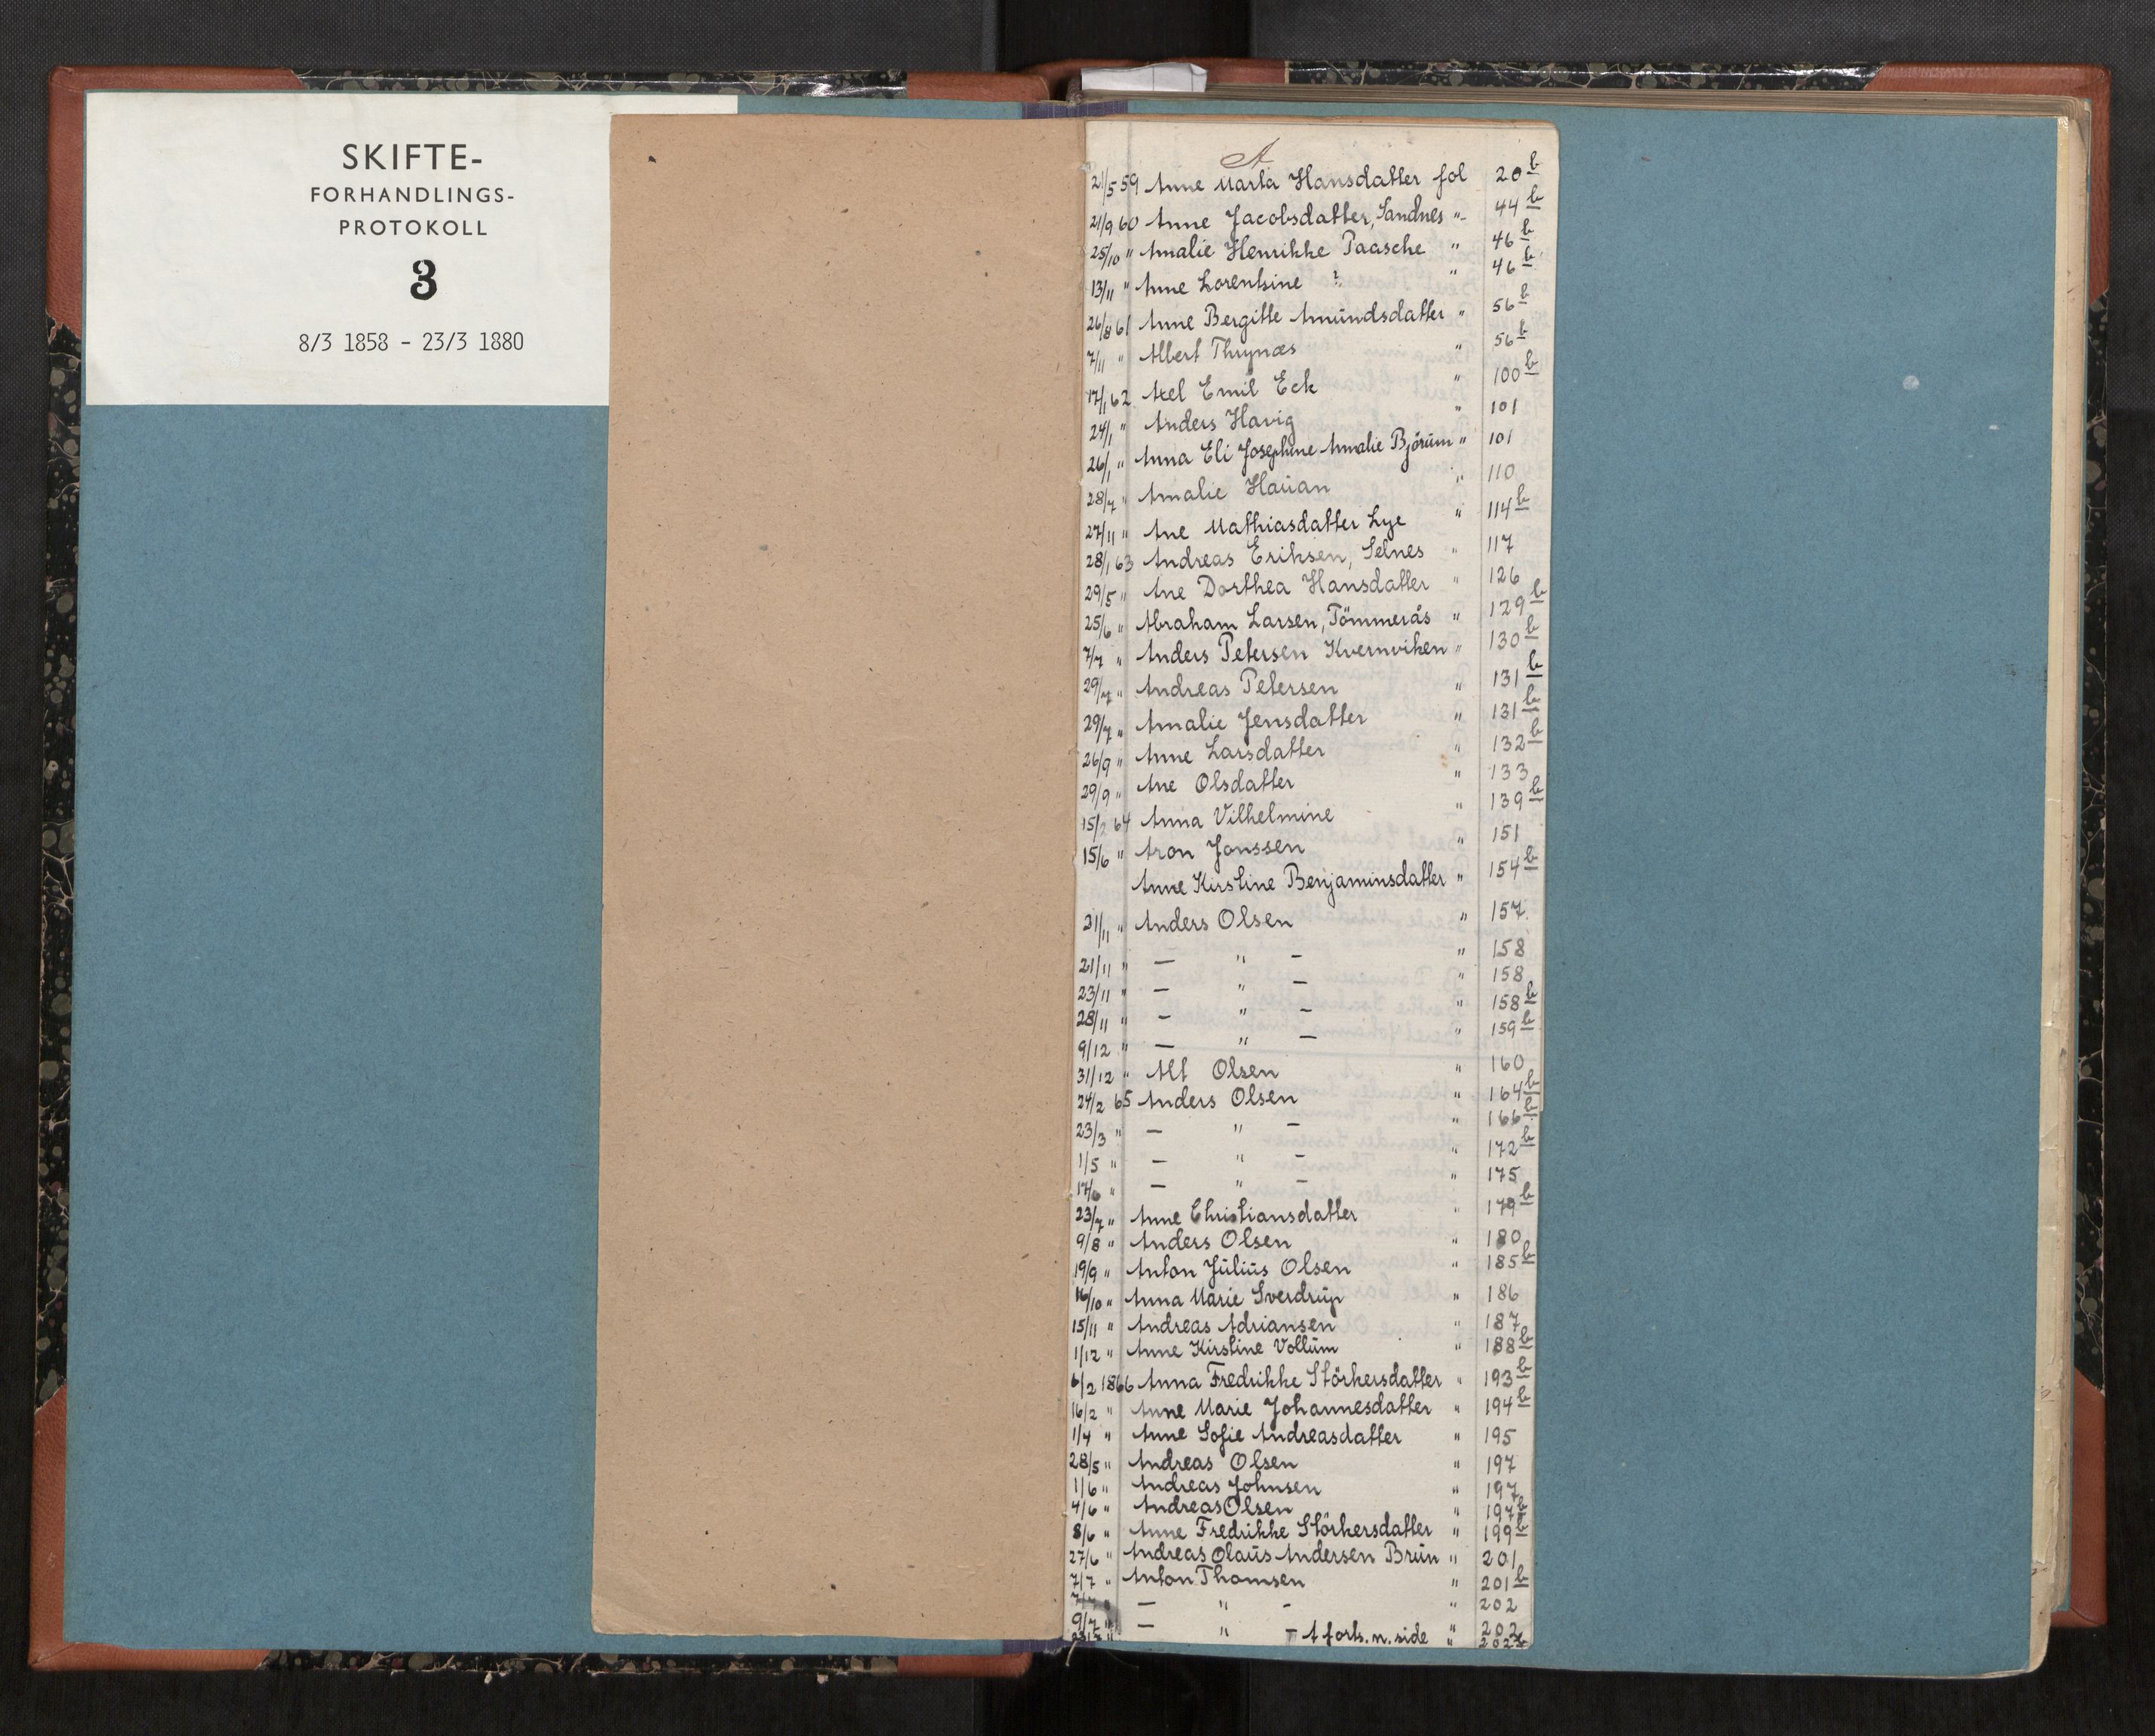 SKIFTE-
FORHANDLINGS-
PROTOKOLL
3
8/3 1858 - 23/3 1880
A
21/5 59 Anne Marta Hansdatter fol 20 b
21/9 60 Anne Jacobsdatter, Sandnes " 44 b
25/10 " Amalie Henrikke Paasche " 46 b
13/11 " Anne Lorentsine ? " 46 b
26/8 61 Anne Bergitte Amundsdatter " 56 b
7/11 " Albert Thrynæs " 56 b
17/1 62 Axel Emil Eck " 100 b
24/1 " Anders Havig " 101
26/1 " Anna Eli Josephine Amalie Bjørum " 101
28/7 " Amalie Hauan " 110
27/11 " Ane Mathiasdatter Lye " 114 b
28/1 63 Andreas Eriksen, Selnes " 117
29/5 " Ane Dorthea Hansdatter " 126
25/6 " Abraham Larsen, Tömmerås " 129 b
7/7 " Anders Petersen Kvernviken " 130 b
29/7 " Andreas Petersen " 131 b
29/7 " Amalie Jensdatter " 131 b
26/9 " Anne Larsdatter " 132 b
29/9 " Ane Olsdatter " 133
15/2 64 Anna Vilhelmine " 139 b
15/6 " Aron Jonssen " 151
Anne Kirstine Benjaminsdatter " 154 b
21/11 " Anders Olsen " 157
21/11 " — " — " 158
23/11 " — " — " 158
28/11 " — " — " 158 b
9/12 " — " — " 159 b
31/12 " Alt Olsen " 160
24/2 65 Anders Olsen " 164 b
23/3 " — " — " 166 b
1/5 " — " — " 172 b
17/6 " — " — " 175
23/7 " Anne Christiansdatter " 179 b
9/8 " Anders Olsen " 180
19/9 " Anton Julius Olsen " 185 b
16/10 " Anna Marie Sverdrup " 186
15/11 " Andreas Adriansen " 187
1/12 " Anne Kirstine Vollum " 188 b
6/2 1866 Anna Fredrikke Störkersdatter " 193 b
16/2 " Anne Marie Johannesdatter " 194 b
1/4 " Anne Sofie Andreasdatter " 195
28/5 " Andreas Olsen " 197
1/6 " Andreas Johnsen " 197
4/6 " Andreas Olsen " 197 b
8/6 " Anne Fredrikke Störkersdatter " 199 b
27/6 " Andreas Olaus Andersen Brun " 201
7/7 " Anton Thomsen " 201 b
7/7 " — " — " 202
9/7 " — " — " 202
" — A forts. n. side " 202 b